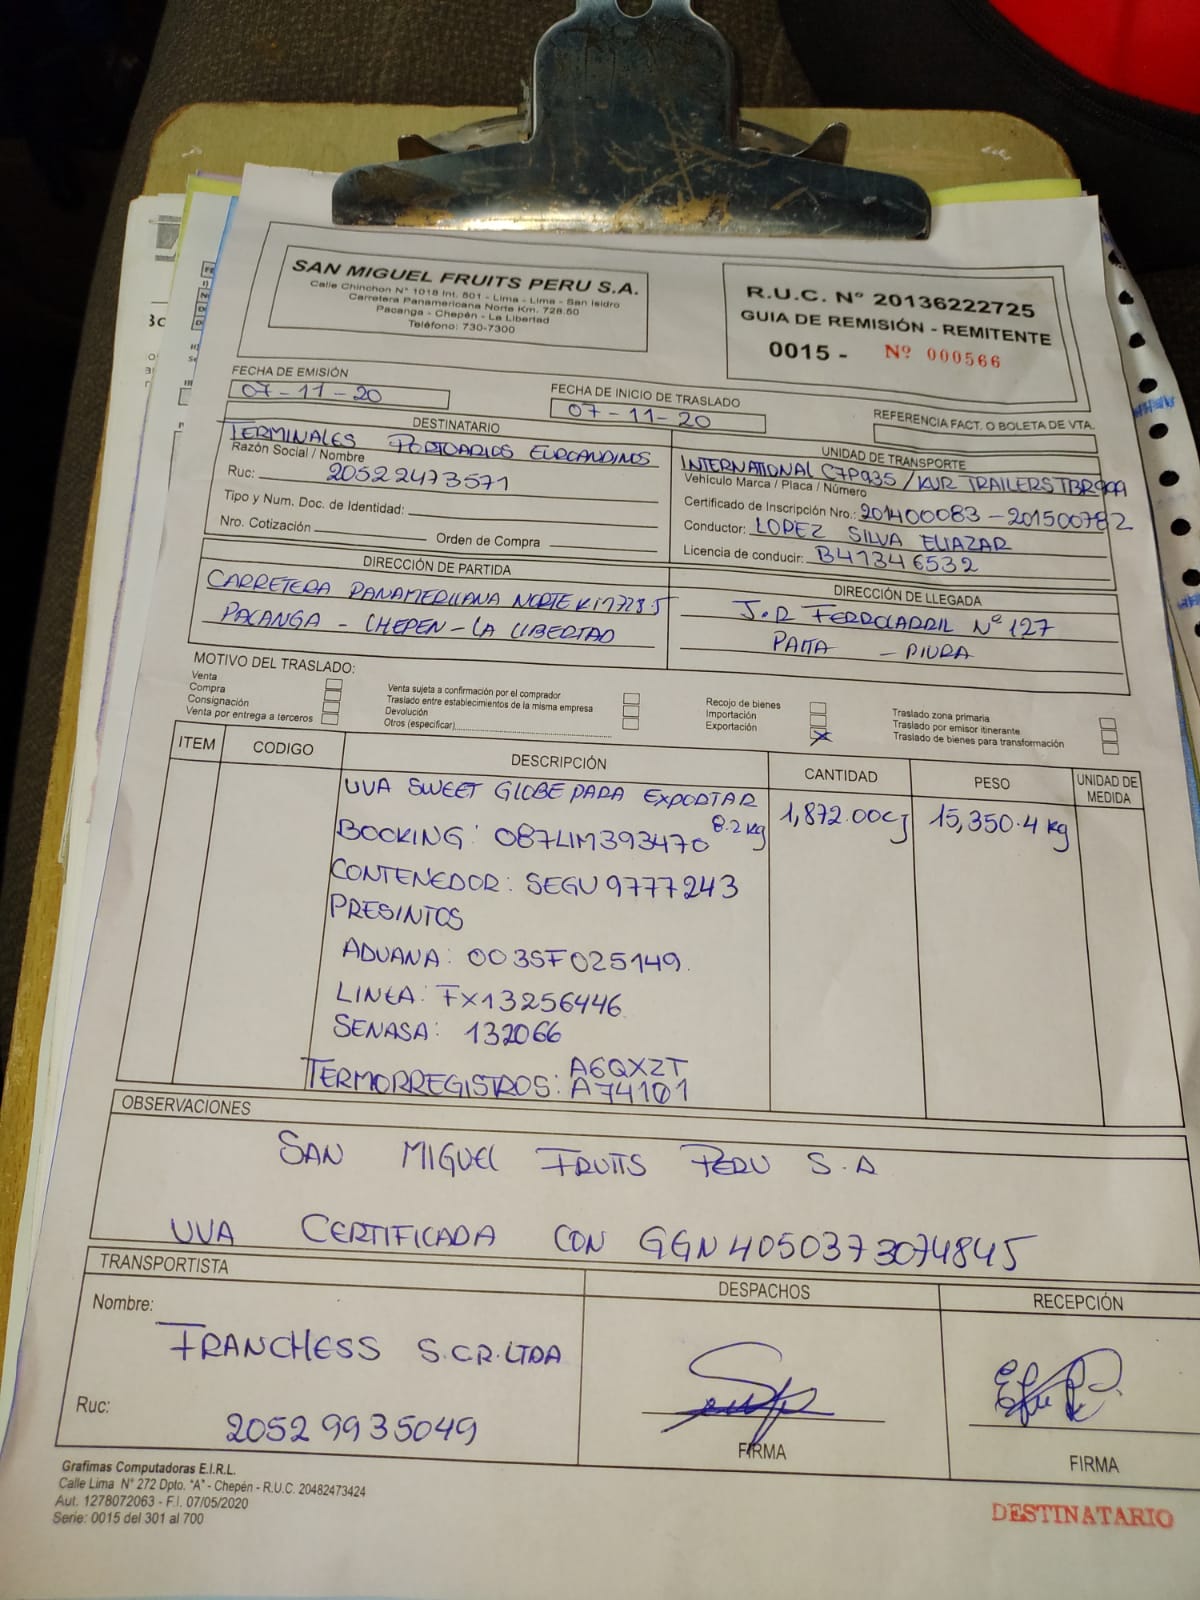 SAN MIGUEL FRUITS PERU S.A.
Calle Chinchon N° 1018 Int. 601 - Lima - Lima - San Isidro
Carretera Panamericana Norte Km. 728.50
Pacanga - Chepén - La Libertad
Teléfono: 730-7300
R.U.C. N° 20136222725
GUIA DE REMISIÓN - REMITENTE
0015 - Nº 000566
FECHA DE EMISIÓN
07-11-20
FECHA DE INICIO DE TRASLADO
07-11-20
REFERENCIA FACT. O BOLETA DE VTA.
DESTINATARIO
TERMINALES PORTUARIOS EUROANDINOS
Razón Social / Nombre
Ruc: 20522473571
Tipo y Num. Doc. de Identidad:
Nro. Cotización
Orden de Compra
UNIDAD DE TRANSPORTE
INTERNATIONAL C7P935 / KUR TRAILERS TBR909
Vehículo Marca / Placa / Número
Certificado de Inscripción Nro.: 201400083 - 201500782
Conductor: LOPEZ SILVA ELIAZAR
Licencia de conducir: B41346532
DIRECCIÓN DE PARTIDA
CARRETERA PANAMERICANA NORTE KM728.5
PACANGA - CHEPEN - LA LIBERTAD
DIRECCIÓN DE LLEGADA
J.R FERROCARRIL Nº 127
PAITA - PIURA
MOTIVO DEL TRASLADO:
Venta
Compra
Consignación
Venta por entrega a terceros
Venta sujeta a confirmación por el comprador
Traslado entre establecimientos de la misma empresa
Devolución
Otros (especificar)
Recojo de bienes
Importación
Exportación X
Traslado zona primaria
Traslado por emisor itinerante
Traslado de bienes para transformación
ITEM CODIGO DESCRIPCIÓN CANTIDAD PESO UNIDAD DE MEDIDA
UVA SWEET GLOBE PARA EXPORTAR 1,872.00CJ 15,350.4 kg
8.2 kg
BOOKING: 087LIM393470
CONTENEDOR: SEGU 9777243
PRESINTOS
ADUANA: 003SF025149.
LINEA: FX13256446
SENASA: 132066
TERMORREGISTROS: A6QXZT
A74101
OBSERVACIONES
SAN MIGUEL FRUITS PERU S.A
UVA CERTIFICADA CON GGN 4050373074845
TRANSPORTISTA
Nombre:
FRANCHESS S.C.R.LTDA
Ruc:
20529935049
DESPACHOS
FIRMA
RECEPCIÓN
FIRMA
Grafimas Computadoras E.I.R.L.
Calle Lima N° 272 Dpto. "A" - Chepén - R.U.C. 20482473424
Aut. 1278072063 - F.I. 07/05/2020
Serie: 0015 del 301 al 700
DESTINATARIO